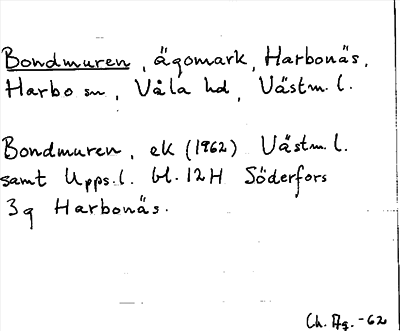 Bondmuren, ägomark, Harbonäs,
Harbo sn, Våla hd, Västm. l.
Bondmuren, ek (1962) Västm. l.
samt Upps. l. bl. 12H Söderfors
3g Harbonäs.
Ch. Ag. -62